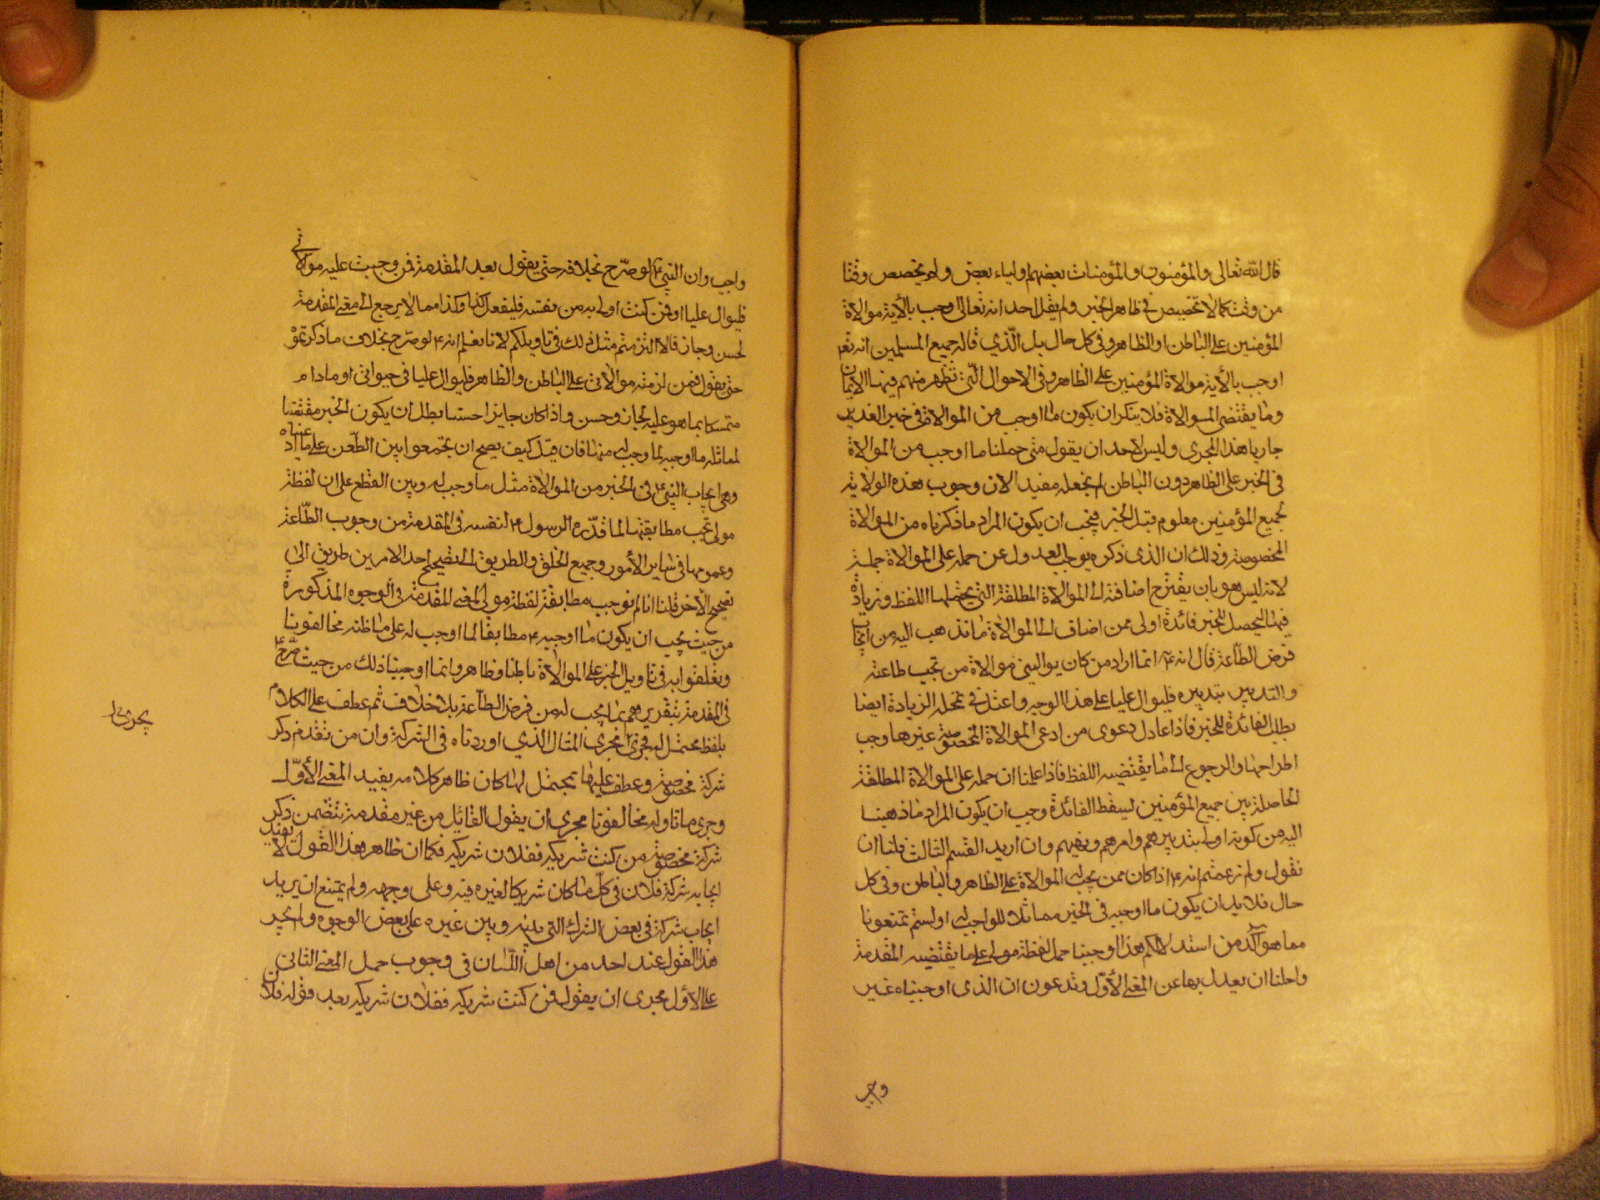 قال الله تعالى والمؤمنون والمؤمنات بعضهم اولياء بعض ولم يخصص وقتا
من وقت كما لا تخصيص في ظاهر الخبر ولم يقل احد انه تعالى اوجب بالآية موالاة
المؤمنين على الباطن او الظاهر وفي كل حال بل الذي قاله جميع المسلمين انه تعم
اوجب بالآية موالاة المؤمنين على الظاهر وفي الاحوال التي تظهر منهم فيها الايمان
وما يقتضي الموالاة فلا ينكر ان يكون ما اوجب من الموالاة في خبر الغدير
جاريا هذا المجرى وليس لاحد ان يقول متى حملنا ما اوجب من الموالاة
في الخبر على الظاهر دون الباطن لم نجعله مفيدا لان وجوب هذه الولاية
لجميع المؤمنين معلوم قبل الخبر فيجب ان يكون المراد ما ذكرناه من الموالاة
المخصوصة وذلك ان الذي ذكره يوجب العدول عن حمله على الموالاة جملة
لانه ليس هو بان يقترح اضافة الى الموالاة المطلقة التي يحتملها اللفظ وزيادة
فيها ليحصل للخبر فائدة اولى ممن اضاف الى الموالاة ما نذهب اليه من ايجاب
فرض الطاعة قال انه ع انما اراد من كان يواليني موالاة من تجب طاعته
والتدبر بتدبيره فليوال عليا على هذا الوجه واعتل في تمحله الزيادة ايضا
بطلب الفائدة للخبر فاذا عادل دعوى من ادعى الموالاة المخصوصة غيرها وجب
اطراحها والرجوع الى ما يقتضيه اللفظ فاذا علمنا ان حمله على الموالاة المطلقة
الحاصلة بين جميع المؤمنين ليسقط الفائدة وجب ان يكون المراد ما ذهبنا
اليه من كونه اولى بتدبيرهم وامرهم ونهيهم وان اريد القسم الثالث قلنا ان
نقول ولم زعمتم انه ع اذا كان ممن يجب له الموالاة على الظاهر والباطن وفي كل
حال فلا بد ان يكون ما اوجبه في الخبر مماثلا للواجب له او لستم تمنعونا
مما هو آكد من استدلالكم هذا اوجبنا حمل لفظة مولى على ما يقتضيه المقدمة
واحلنا ان يعدل بها عن المعنى الاول وتدعون ان الذي اوجبناه غير
واجب
واجب وان النبي ص لو صرح بخلافه حتى يقول بعد المقدمة فمن وجبت عليه موالاتي
فليوال عليا او فمن كنت اولى به من نفسه فليفعل كذا وكذا مما لا يرجع الى معنى المقدمة
لحسن وجاز فالا التزمتم مثل ذلك في تاويلكم لانا نعلم انه ع لو صرح بخلاف ما ذكرتموه
حتى يقول فمن لزمته موالاتي على الباطن والظاهر فليوال عليا في حيواتي او ما دام
متمسكا بما هو عليه لجاز وحسن واذا كان جايزا حسنا بطل ان يكون الخبر مقتضيا
لمماثلة ما اوجبه لما وجب له منها فان قيل كيف يصح ان تجمعوا بين الطعن على ما ادعيناه
وهي ايجاب النبي ص في الخبر من الموالاة مثل ما وجب له وبين القطع على ان لفظة
مولى تجب مطابقتها لما قدره الرسول ص لنفسه في المقدمة من وجوب الطاعة
وعمومها في ساير الأمور وجميع الخلق والطريق الى تصحيح احد الامرين طريق الى
تصحيح الآخر قلنا انا لم نوجب مطابقة لفظة مولى لمعنى المقدمة في الوجوه المذكورة
من حيث يجب ان يكون ما اوجبه ع مطابقا لما اوجب له على ما ظنه مخالفونا
وتعلقوا به في تاويل الخبر على الموالاة باطنا وظاهرا وانما اوجبنا ذلك من حيث صرح ع
في المقدمة بتقريرهم بما يجب له من فرض الطاعة بلا خلاف ثم عطف على الكلام
بلفظ محتمل له فجرى مجرى المثال الذي اوردناه في الشركة وان من تقدم ذكر
شركة مخصوصة وعطف عليها بمحتمل لها كان ظاهر كلامه يفيد المعنى الأول
وجرى ما تاوله مخالفونا مجرى ان يقول القائل من غير مقدمة يتضمن ذكر
شركة مخصوصة من كنت شريكه ففلان شريكه فكما ان ظاهر هذا القول لا يفيد
ايجابه شركة فلان في كل ما كان شريكا لغيره فيه وعلى وجهه ولم يمتنع ان يريد
ايجاب شركته في بعض الشرك التي بينه وبين غيره على بعض الوجوه ولم تجر
هذا القول عند احد من اهل اللسان في وجوب حمل المعنى الثاني
على الاول مجرى ان يقول فمن كنت شريكه ففلان شريكه بعد قوله فلان
يجري